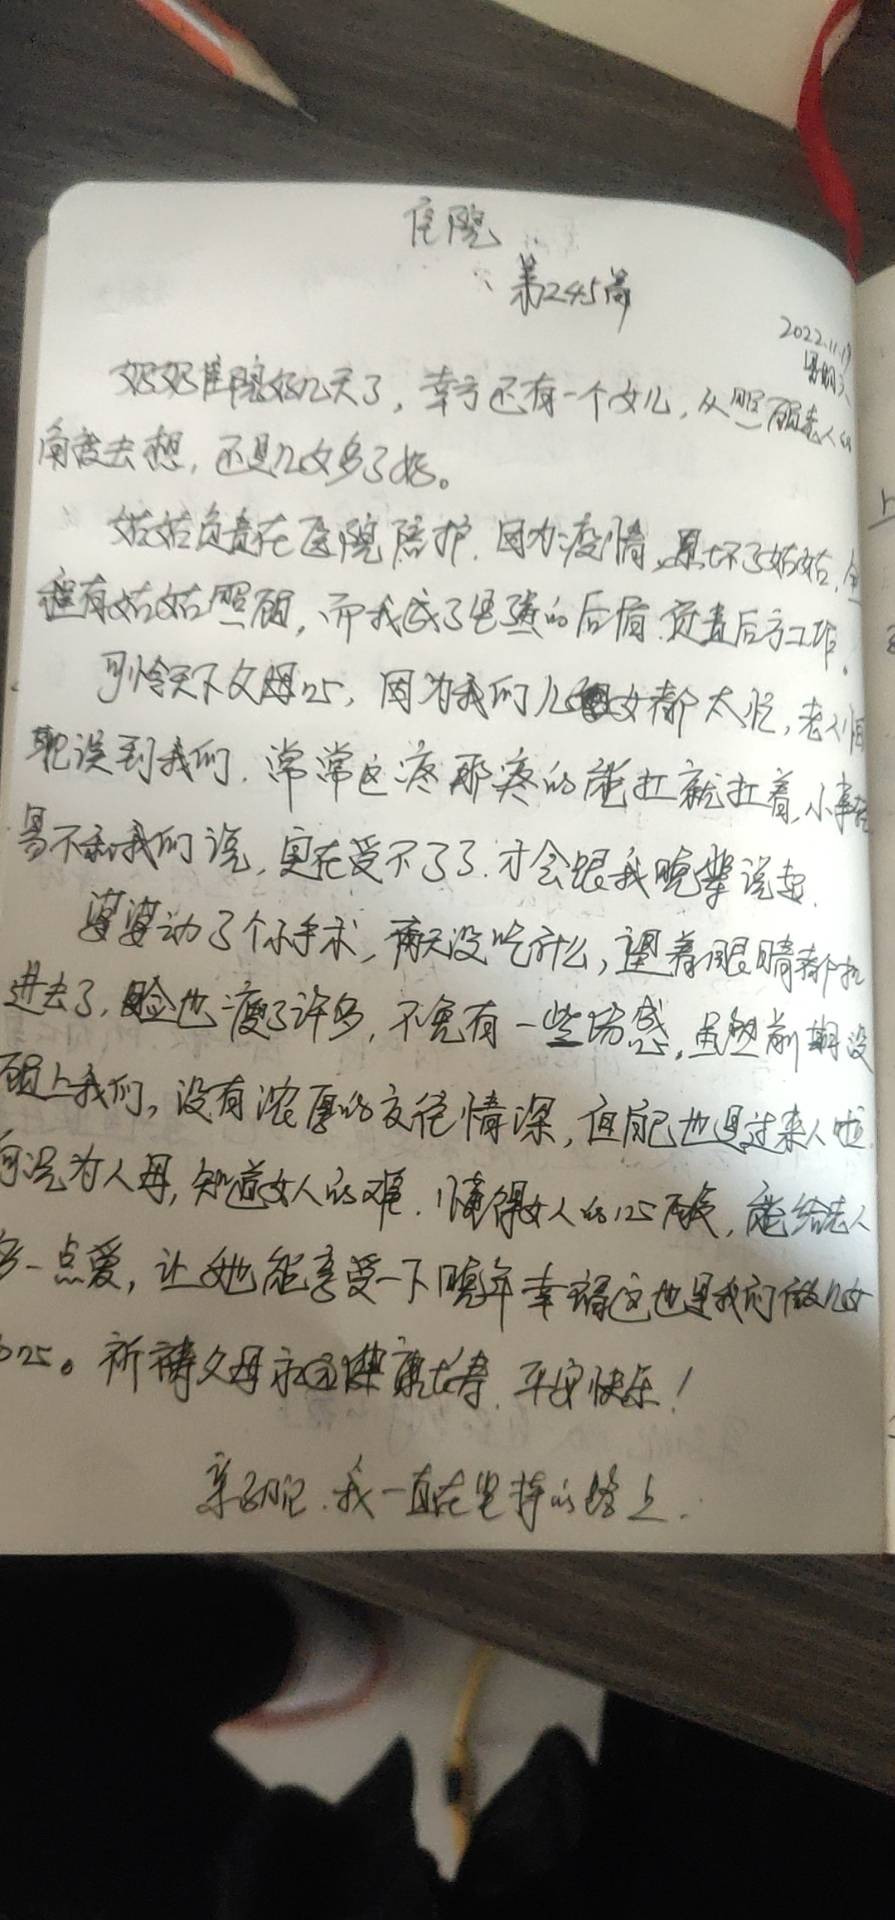 住院
第245篇
2022.11.19
星期六
奶奶住院好几天了，幸亏还有一个女儿，从照顾老人的
角度去想，还是儿女多了好。
姑姑负责在医院陪护，因为疫情，累坏了姑姑，全
程有姑姑照顾，而我成了坚强的后盾，负责后方工作。
可怜天下父母心，因为我们儿女都太忙，老人怕
耽误到我们，常常这疼那疼的能扛就扛着，小事轻
易不和我们说，实在受不了了，才会跟我晚辈说起
婆婆动了个小手术，两天没吃什么，望着眼睛都扣
进去了，脸也瘦了许多，不免有一些伤感，虽然前期没
顾上我们，没有浓厚的友谊情深，但自己也是过来人啦
何况为人母，知道女人的难，懂得女人的心，能给老人
多一点爱，让她能享受一下晚年幸福这也是我们做儿女
心。祈祷父母永远健康长寿，平安快乐！
亲子日记，我一直在坚持的路上.